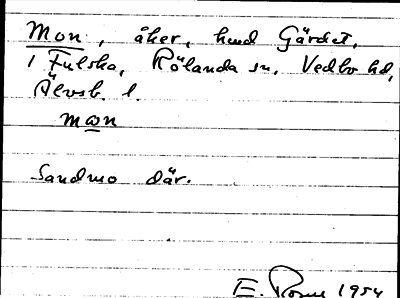 Mon, åker, hmd Gärdet,
1 Fulska, Rölanda sn, Vedbo hd,
Älvsb. l.
man
Sandmo där.
E. 1954